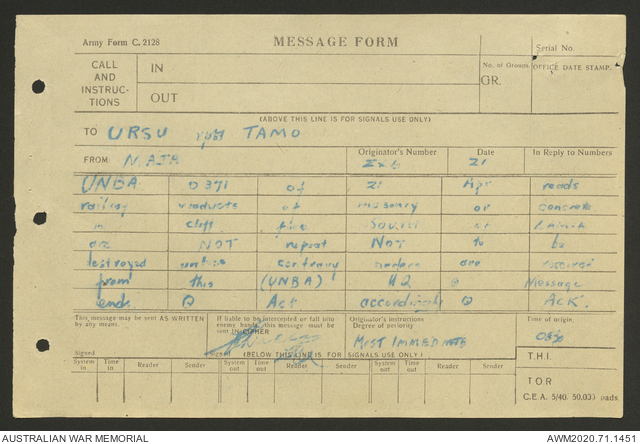 Army Form C. 2128
MESSAGE FORM
Serial No.
CALL AND INSTRUC-TIONS
IN
No. of Groups.
OFFICE DATE STAMP.
GR.
OUT
(ABOVE THIS LINE IS FOR SIGNALS USE ONLY)
TO URSU rptd TAMO
FROM NAJA
Originator's Number
Date 21
In Reply to Numbers
UNBA O 371 of 21 Apr reads
railway viaducts of masonry or concrete
in cliff face South of LAMIA
are NOT repeat NOT to be
destroyed unless contrary orders are received
from this (UNBA) HQ Q Message
ends. Q Act accordingly Q ACK.
This message may be sent AS WRITTEN by any means.
If liable to be intercepted or fall into enemy hands, this message must be sent IN CIPHER
Originator's instructions
Degree of periority
MOST IMMEDIATE
Time of origin.
Signed
Signed
(BELOW THIS LINE IS FOR SIGNALS USE ONLY)
T.H.I.
System in
Time in
Reader
Sender
System out
Time out
Reader
Sender
System out
Time out
Reader
Sender
T.O.R
C.E.A. 5/40. 50,000 pads.
AUSTRALIAN WAR MEMORIAL
AWM2020.71.1451